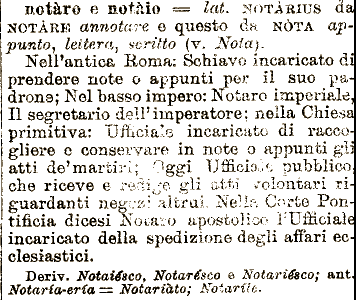 notàro e notàio = lat. NOTÀRIUS da
NOTÀRE annotare e questo da NÒTA ap-
punto, leitera, scritto (v. Nota).
Nell'antica Roma: Schiavo incaricato di
prendere note o appunti per il suo pa-
drone; Nel basso impero: Notaro imperiale,
Il segretario dell'imperatore; nella Chiesa
primitiva: Ufficiale incaricato di racco-
gliere e conservare in note o appunti gli
atti de'martiri; Oggi Ufficiale pubblico,
che riceve e redige gli atti volontari ri-
guardanti negozi altrui. Nella Corte Pon-
tificia dicesi Notaro apostolico l'Ufficiale
incaricato della spedizione degli affari ec-
clesiastici.
Deriv. Notaiésco, Notarésco e Notariésco; ant.
Notaria-ería = Notariàto; Notarile.